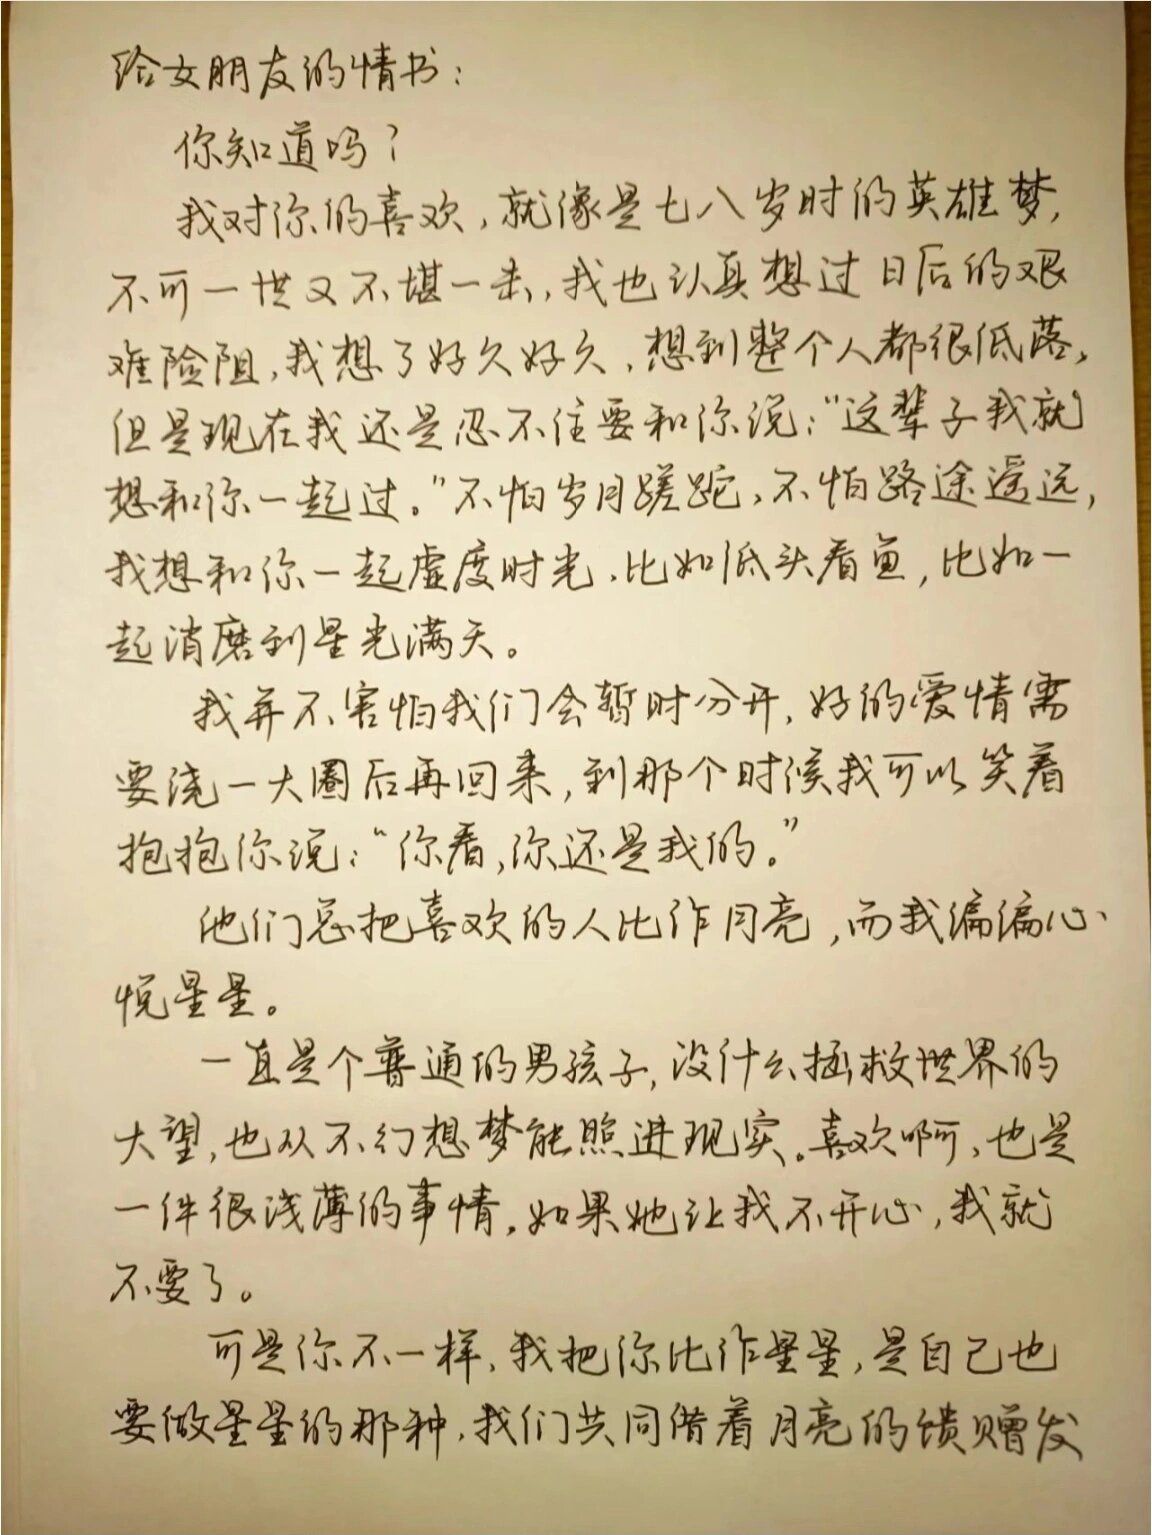 给女朋友的情书：
你知道吗？
我对你的喜欢，就像是七八岁时的英雄梦，
不可一世又不堪一击，我也认真想过日后的艰
难险阻，我想了好久好久，想到整个人都很低落，
但是现在我还是忍不住要和你说：“这辈子我就
想和你一起过。”不怕岁月蹉跎，不怕路途遥远，
我想和你一起虚度时光，比如低头看鱼，比如一
起消磨到星光满天。
我并不害怕我们会暂时分开，好的爱情需
要浇一大圈后再回来，到那个时候我可以笑着
抱抱你说：“你看，你还是我的。”
他们总把喜欢的人比作月亮，而我偏偏心
悦星星。
一直是个普通的男孩子，没什么拯救世界的
大望，也从不幻想梦能照进现实。喜欢啊，也是
一件很浅薄的事情，如果她让我不开心，我就
不要了。
可是你不一样，我把你比作星星，是自己也
要做星星的那种，我们共同借着月亮的馈赠发